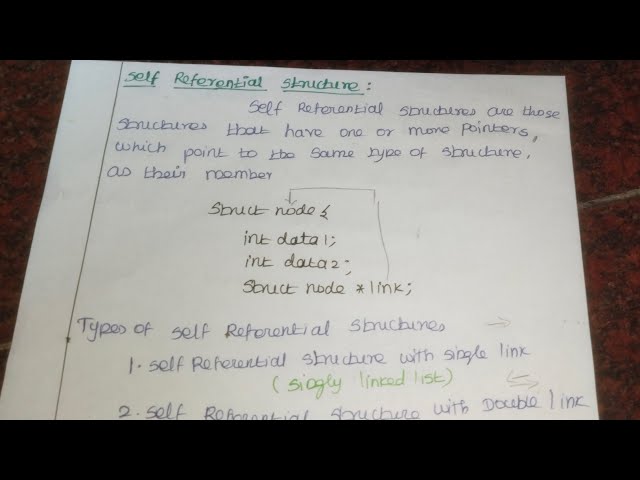 Self Referential Structure:
Self Referential structures are those
structures that have one or more pointers,
which point to the same type of structure,
as their member
Struct node {
int data1;
int data2;
Struct node *link;
Types of self Referential structures
1. self Referential structure with single link
(singly linked list)
2. Self Referential structure with Double link